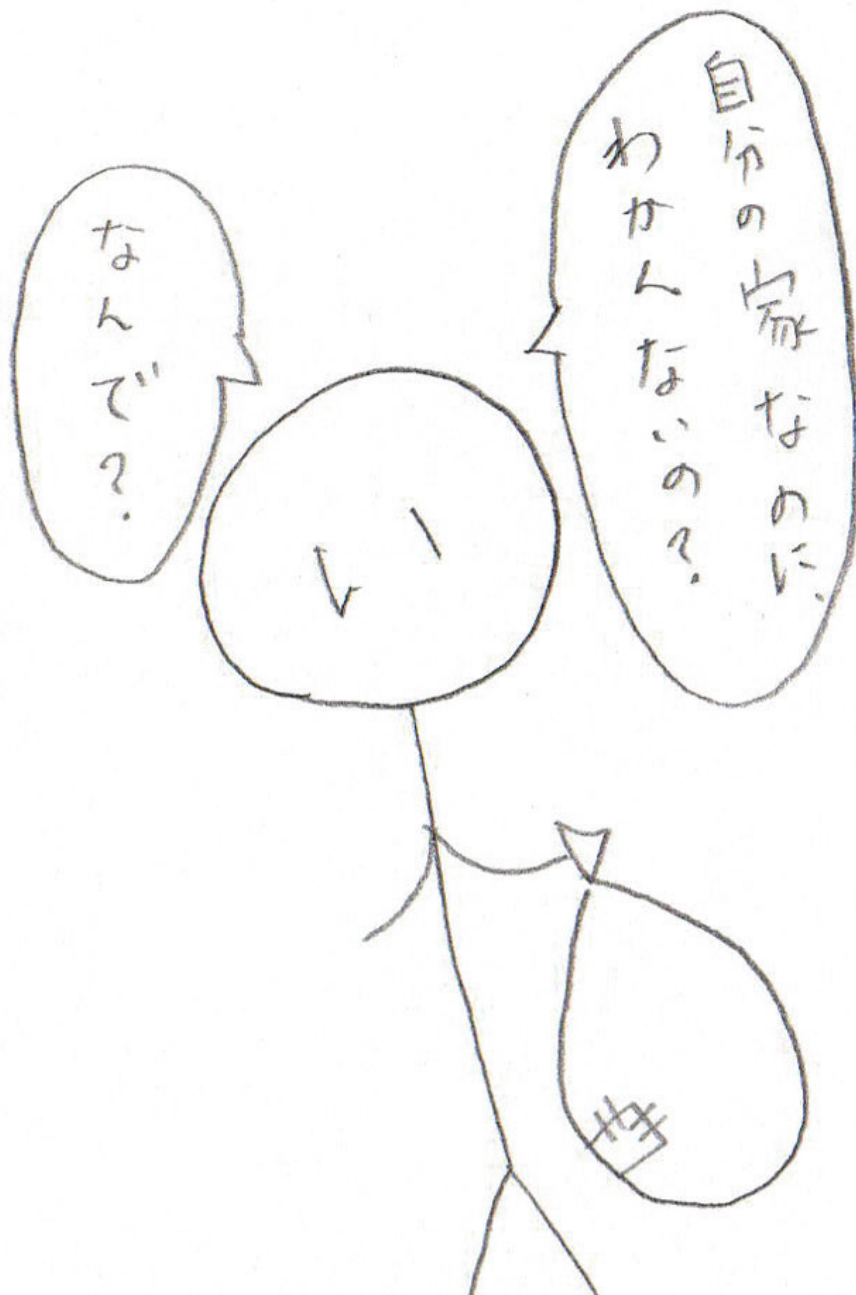 自分の家なのに、
わかんないの?
なんで?